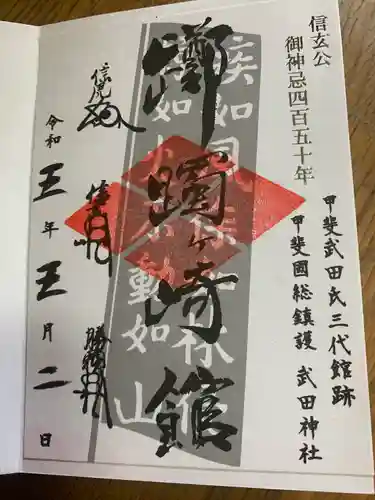 信玄公
御神忌四百五十年
甲斐武田氏三代館跡
甲斐國総鎮護 武田神社
躑躅ヶ崎館
疾如風徐如林
侵掠如火不動如山
信虎
信玄
勝頼
令和五年五月二日